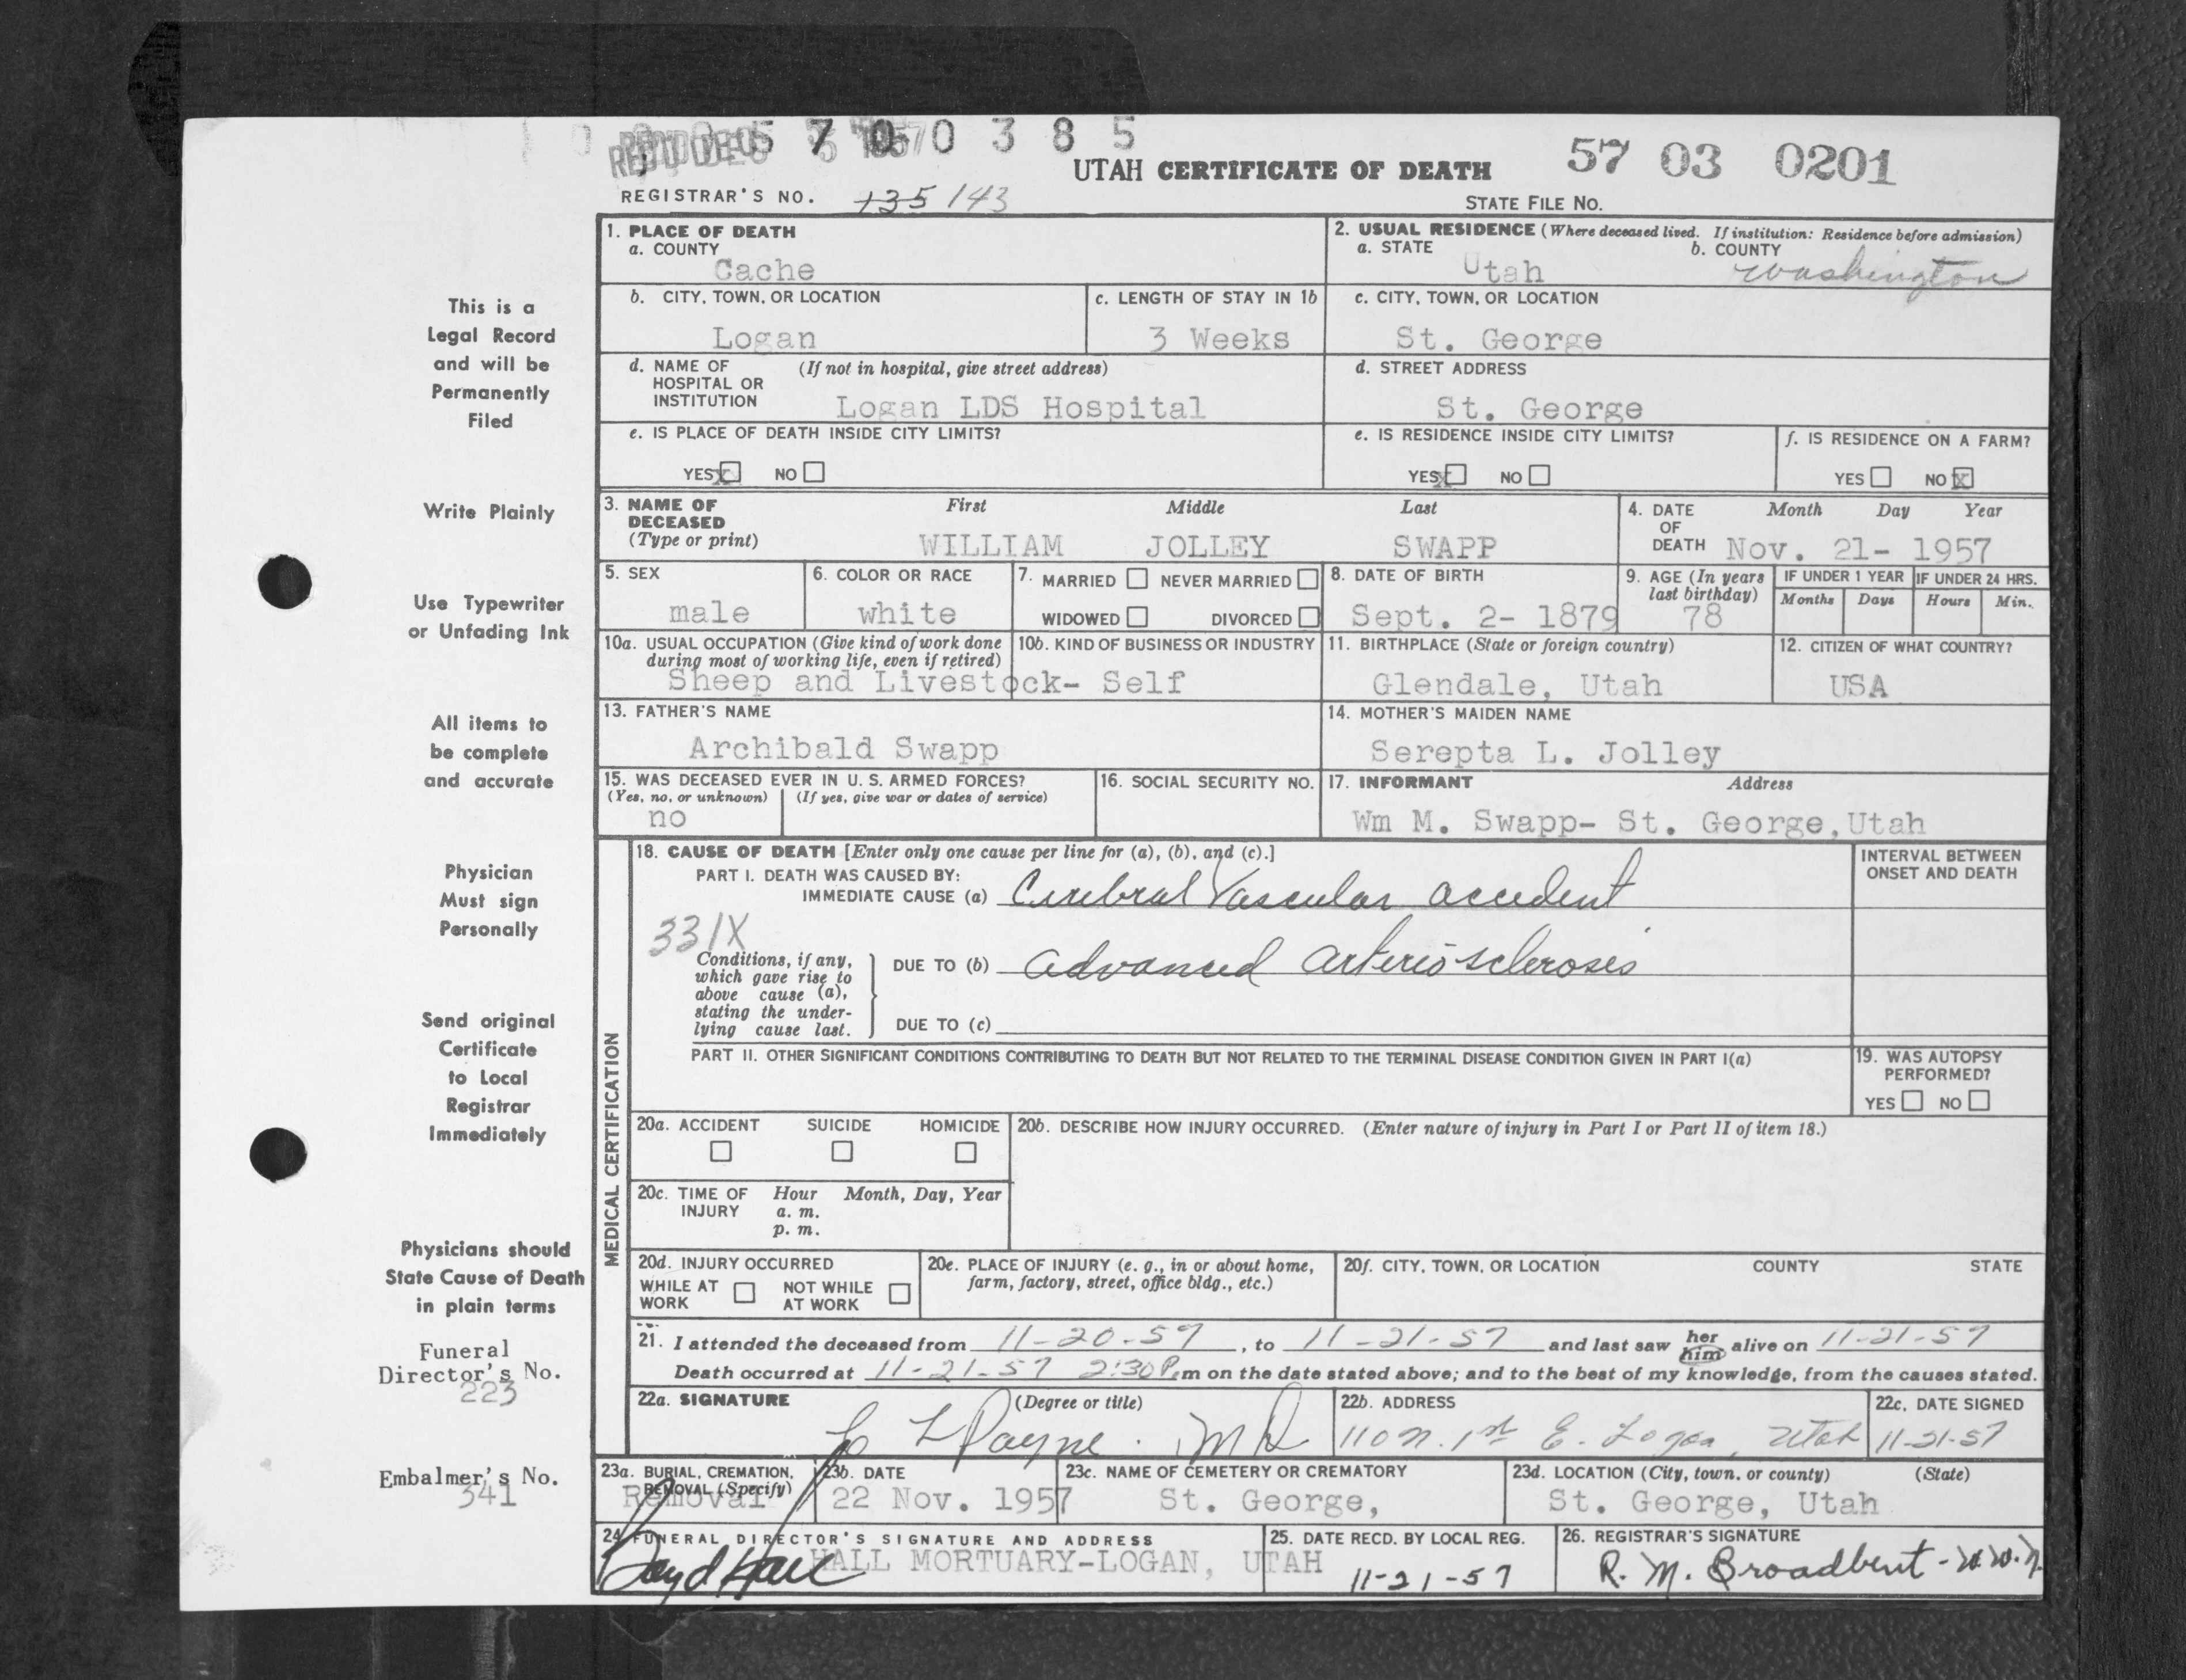 5 7 0 0 3 8 5
57 03 0201
UTAH CERTIFICATE OF DEATH
REGISTRAR'S NO. 135 143
STATE FILE NO.
This is a
Legal Record
and will be
Permanently
Filed
Write Plainly
Use Typewriter
or Unfading Ink
All items to
be complete
and accurate
Physician
Must sign
Personally
Send original
Certificate
to Local
Registrar
Immediately
Physicians should
State Cause of Death
in plain terms
Funeral
Director's No.
223
Embalmer's No.
341
1. PLACE OF DEATH
a. COUNTY
Cache
2. USUAL RESIDENCE (Where deceased lived. If institution: Residence before admission)
a. STATE
Utah
b. COUNTY
Washington
b. CITY, TOWN, OR LOCATION
Logan
c. LENGTH OF STAY IN 1b
3 Weeks
c. CITY, TOWN, OR LOCATION
St. George
d. NAME OF (If not in hospital, give street address)
HOSPITAL OR
INSTITUTION
Logan LDS Hospital
d. STREET ADDRESS
St. George
e. IS PLACE OF DEATH INSIDE CITY LIMITS?
YES X NO
e. IS RESIDENCE INSIDE CITY LIMITS?
YES X NO
f. IS RESIDENCE ON A FARM?
YES NO X
3. NAME OF
DECEASED
(Type or print)
First Middle Last
WILLIAM JOLLEY SWAPP
4. DATE
OF
DEATH
Month Day Year
Nov. 21- 1957
5. SEX
male
6. COLOR OR RACE
white
7. MARRIED NEVER MARRIED
WIDOWED DIVORCED
8. DATE OF BIRTH
Sept. 2- 1879
9. AGE (In years
last birthday)
78
IF UNDER 1 YEAR
Months Days
IF UNDER 24 HRS.
Hours Min.
10a. USUAL OCCUPATION (Give kind of work done
during most of working life, even if retired)
10b. KIND OF BUSINESS OR INDUSTRY
Sheep and Livestock- Self
11. BIRTHPLACE (State or foreign country)
Glendale, Utah
12. CITIZEN OF WHAT COUNTRY?
USA
13. FATHER'S NAME
Archibald Swapp
14. MOTHER'S MAIDEN NAME
Serepta L. Jolley
15. WAS DECEASED EVER IN U. S. ARMED FORCES?
(Yes, no, or unknown) (If yes, give war or dates of service)
no
16. SOCIAL SECURITY NO.
17. INFORMANT Address
Wm M. Swapp- St. George, Utah
MEDICAL CERTIFICATION
18. CAUSE OF DEATH [Enter only one cause per line for (a), (b), and (c).]
PART I. DEATH WAS CAUSED BY:
IMMEDIATE CAUSE (a) Cerebral Vascular accident
INTERVAL BETWEEN
ONSET AND DEATH
331X
Conditions, if any,
which gave rise to
above cause (a),
stating the under-
lying cause last.
DUE TO (b) advanced arteriosclerosis
DUE TO (c)
PART II. OTHER SIGNIFICANT CONDITIONS CONTRIBUTING TO DEATH BUT NOT RELATED TO THE TERMINAL DISEASE CONDITION GIVEN IN PART I(a)
19. WAS AUTOPSY
PERFORMED?
YES NO
20a. ACCIDENT SUICIDE HOMICIDE
20b. DESCRIBE HOW INJURY OCCURRED. (Enter nature of injury in Part I or Part II of item 18.)
20c. TIME OF Hour Month, Day, Year
INJURY a. m.
p. m.
20d. INJURY OCCURRED
WHILE AT NOT WHILE
WORK AT WORK
20e. PLACE OF INJURY (e. g., in or about home,
farm, factory, street, office bldg., etc.)
20f. CITY, TOWN, OR LOCATION COUNTY STATE
21. I attended the deceased from 11-20-57, to 11-21-57 and last saw her him alive on 11-21-57
Death occurred at 11-21-57 2:30 P.m on the date stated above; and to the best of my knowledge, from the causes stated.
22a. SIGNATURE (Degree or title)
C L Payne. MD
22b. ADDRESS
110 N. 1st E. Logan, Utah
22c. DATE SIGNED
11-21-57
23a. BURIAL, CREMATION,
REMOVAL (Specify)
Removal
23b. DATE
22 Nov. 1957
23c. NAME OF CEMETERY OR CREMATORY
St. George,
23d. LOCATION (City, town, or county) (State)
St. George, Utah
24 FUNERAL DIRECTOR'S SIGNATURE AND ADDRESS
Boyd Hall HALL MORTUARY-LOGAN, UTAH
25. DATE RECD. BY LOCAL REG.
11-21-57
26. REGISTRAR'S SIGNATURE
R. M. Broadbent